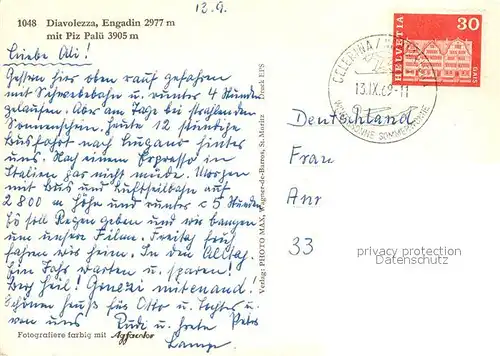 13.9.
1048 Diavolezza, Engadin 2977 m
mit Piz Palü 3905 m
Liebe Ali!
Gestern hier oben rauf gefahren
mit Schwebebahn u. runter 4 Stunden
gelaufen. Aber am Tage bei strahlenden
Sonnenschein. Heute 12 stündige
Busfahrt nach Lugano hinter
uns. Nach einem Expresso in
Italien gar nicht müde. Morgen
mit Bus und Luftseilbahn auf
2800 m Höhe und runter 5 Stunden
Es soll Regen geben und wir bangen
um unsere Filme. Freitag früh
fahren wir heim. In den Alltag.
Ein Jahr warten u. sparen!
Berg heil! mitenand.
Schönen Gruß für Otto u.
von uns Rudi u. Grete
Fotografiere farbig mit Agfacolor
Verlag: PHOTO MAX, Wagner-de-Barros, St. Moritz Druck EPS
CELERINA/
13.IX.69-11
HELVETIA
30
GAIS
Deutschland
Frau
Anr
33
privacy protection
Datenschutz